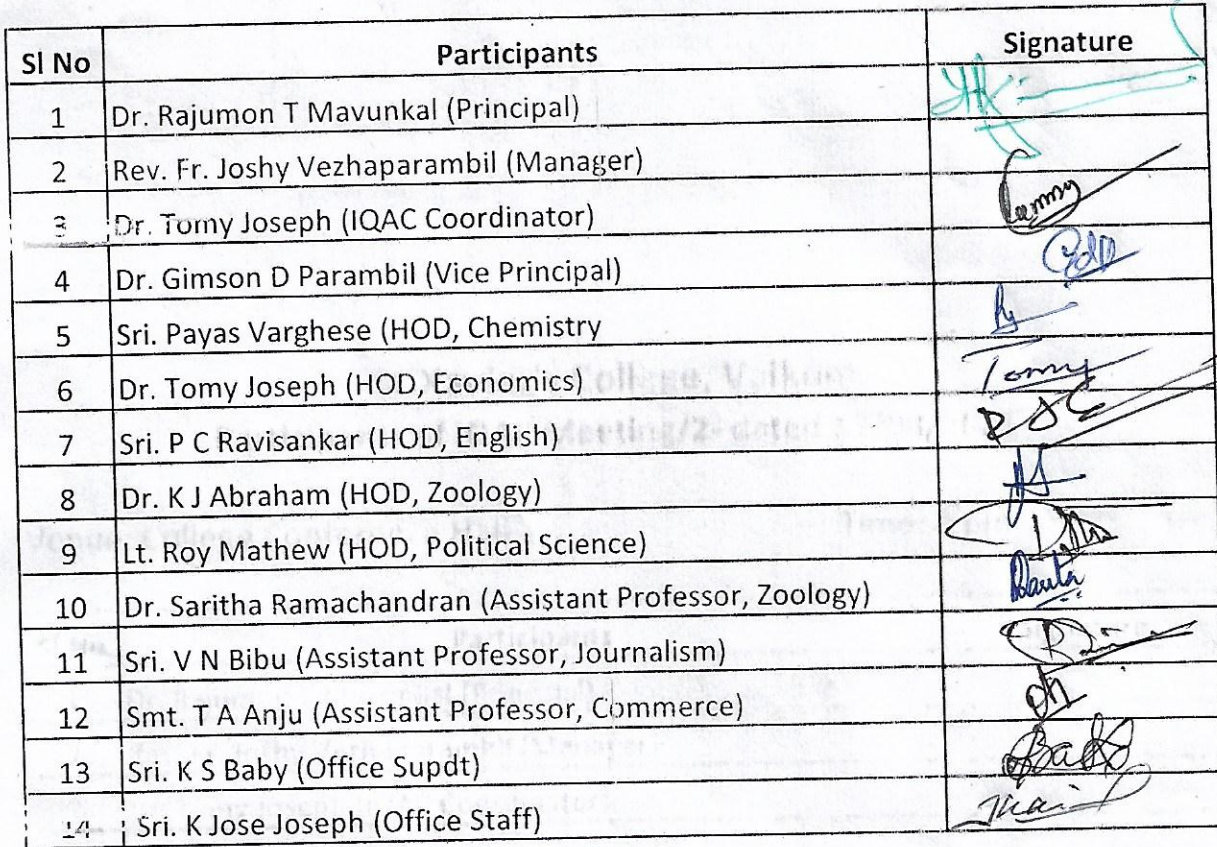 Sl No Participants Signature
1 Dr. Rajumon T Mavunkal (Principal)
2 Rev. Fr. Joshy Vezhaparambil (Manager)
3 Dr. Tomy Joseph (IQAC Coordinator)
4 Dr. Gimson D Parambil (Vice Principal)
5 Sri. Payas Varghese (HOD, Chemistry
6 Dr. Tomy Joseph (HOD, Economics) Tomy
7 Sri. P C Ravisankar (HOD, English)
8 Dr. K J Abraham (HOD, Zoology)
9 Lt. Roy Mathew (HOD, Political Science)
10 Dr. Saritha Ramachandran (Assistant Professor, Zoology)
11 Sri. V N Bibu (Assistant Professor, Journalism)
12 Smt. T A Anju (Assistant Professor, Commerce)
13 Sri. K S Baby (Office Supdt)
14 Sri. K Jose Joseph (Office Staff)